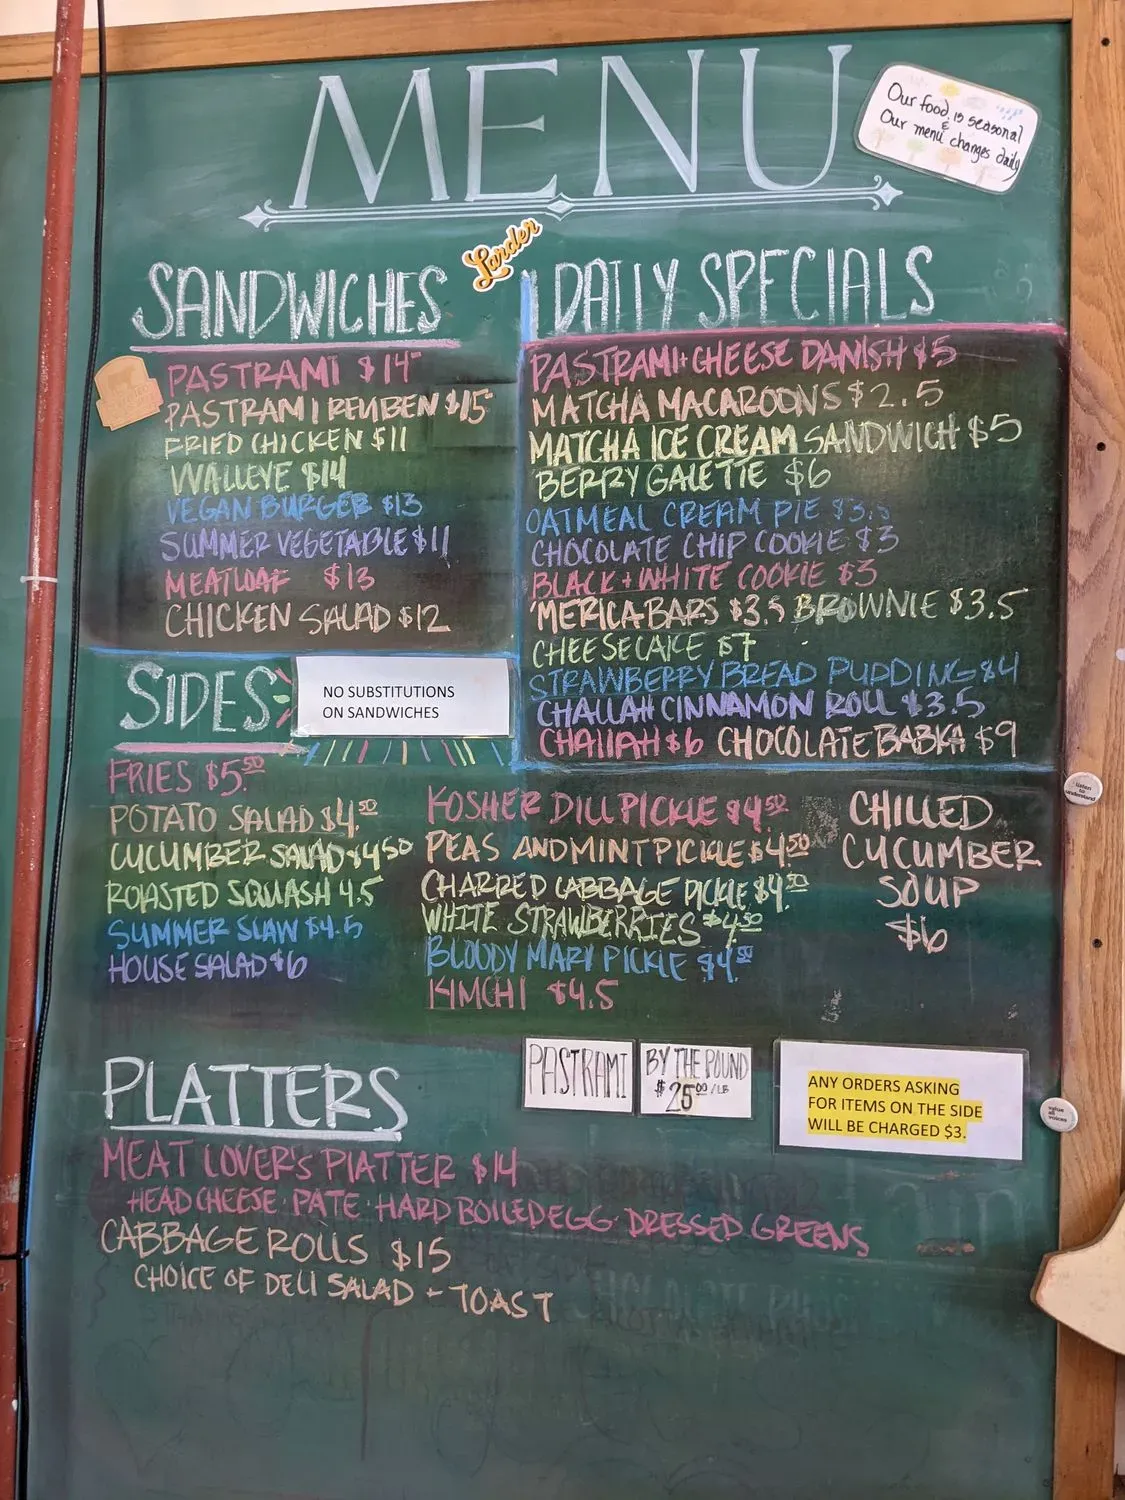 MENU
Our food is seasonal
&
Our menu changes daily
Larder
SANDWICHES
PASTRAMI $14
PASTRAMI REUBEN $15
FRIED CHICKEN $11
WALLEYE $14
VEGAN BURGER $13
SUMMER VEGETABLE $11
MEATLOAF $13
CHICKEN SALAD $12
DAILY SPECIALS
PASTRAMI + CHEESE DANISH $5
MATCHA MACAROONS $2.5
MATCHA ICE CREAM SANDWICH $5
BERRY GALETTE $6
OATMEAL CREAM PIE $3.5
CHOCOLATE CHIP COOKIE $3
BLACK + WHITE COOKIE $3
'MERICA BARS $3.5 BROWNIE $3.5
CHEESECAKE $7
STRAWBERRY BREAD PUDDING $4
CHALLAH CINNAMON ROLL $3.5
CHALLAH $6 CHOCOLATE BABKA $9
SIDES
NO SUBSTITUTIONS
ON SANDWICHES
FRIES $5.50
POTATO SALAD $4.50
CUCUMBER SALAD $4.50
ROASTED SQUASH 4.5
SUMMER SLAW $4.5
HOUSE SALAD $6
KOSHER DILL PICKLE $4.50
PEAS AND MINT PICKLE $4.50
CHARRED CABBAGE PICKLE $4.50
WHITE STRAWBERRIES $4.50
BLOODY MARY PICKLE $4.50
KIMCHI $4.5
CHILLED
CUCUMBER
SOUP
$6
PASTRAMI
BY THE POUND
$25.00/LB
ANY ORDERS ASKING
FOR ITEMS ON THE SIDE
WILL BE CHARGED $3.
listen
to
understand
value
all
voices
PLATTERS
MEAT LOVER'S PLATTER $14
HEAD CHEESE · PATE · HARD BOILED EGG · DRESSED GREENS
CABBAGE ROLLS $15
CHOICE OF DELI SALAD - TOAST